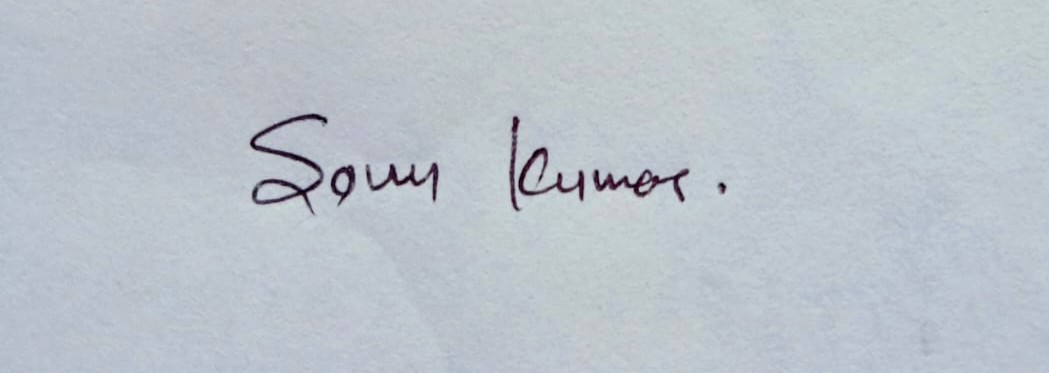 Sonu Kumar.